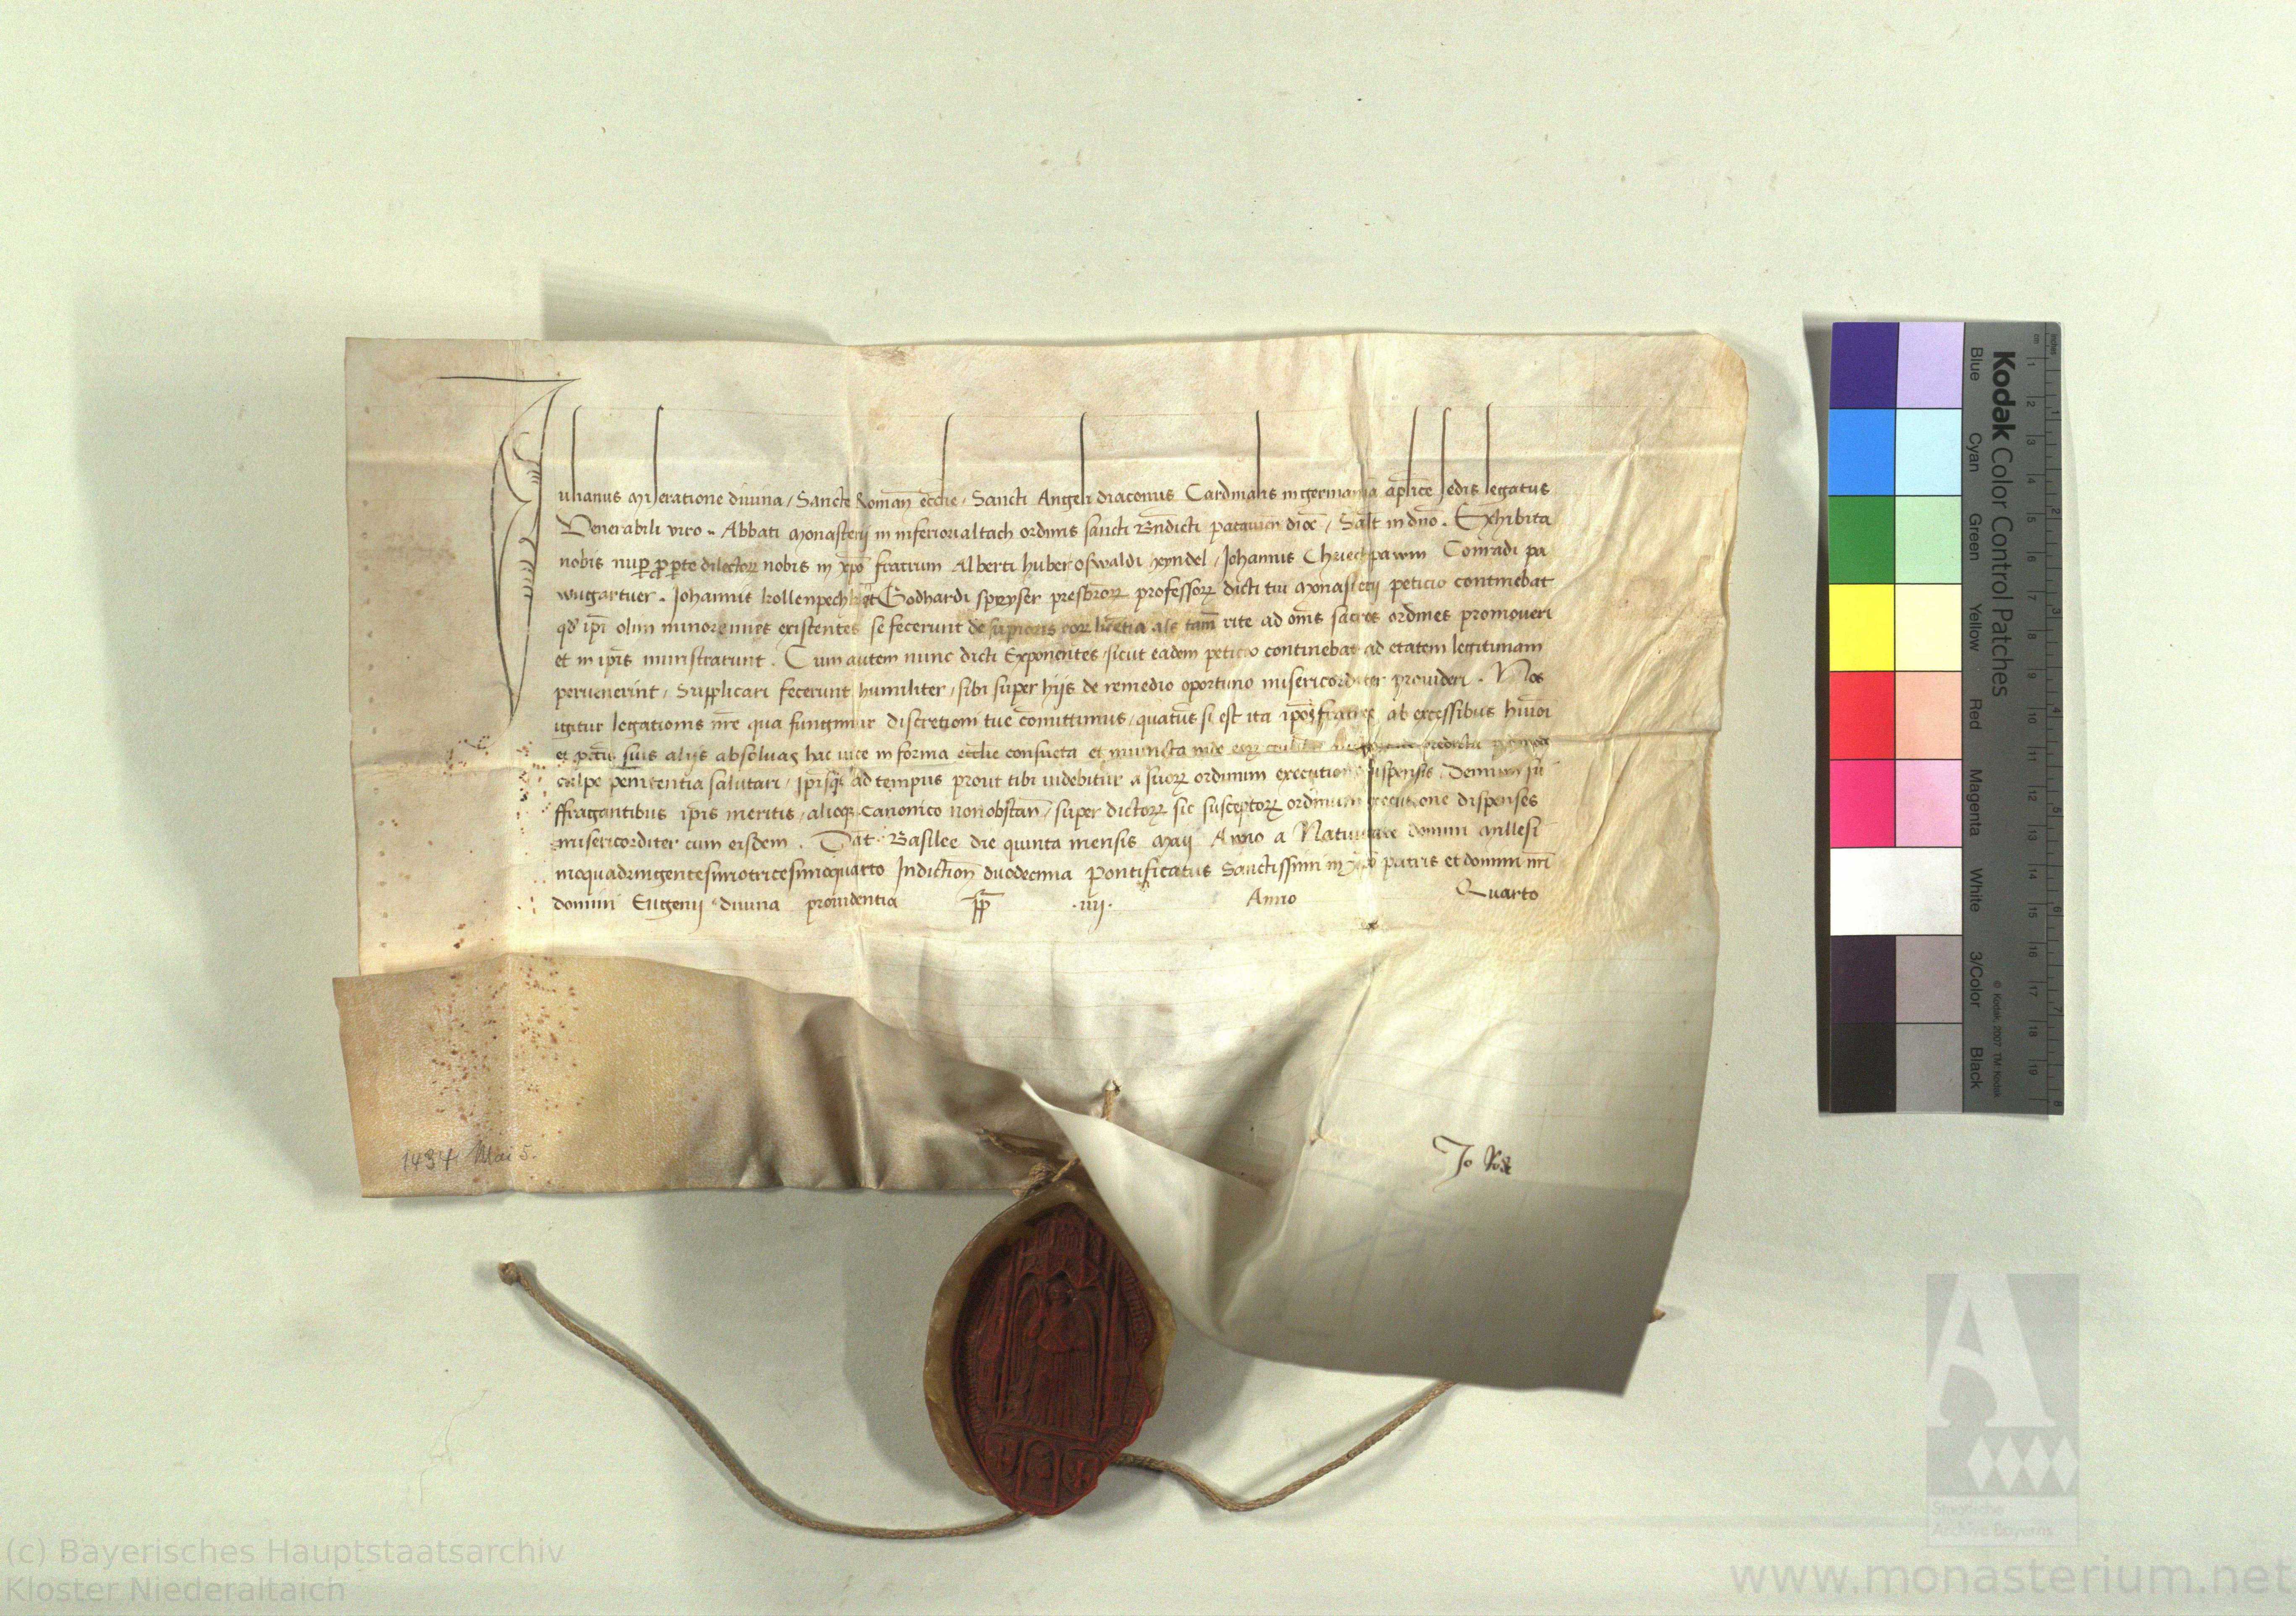 Iulianus miseratione divina, Sancte Roman̄ eccl̄ie, Sancti Angeli diaconus Cardinalis in germania ap̄lice sedis legatus
Venerabili viro .. Abbati monasterij in inferiorialtach ordinis sancti Bn̄dicti patavien̄ dioc̄, Salt̄ in dn̄o. Exhibita
nobis nuꝑ ꝓ ꝑte dilectoꝝ nobis in xp̄o fratrum Alberti huber oswaldi Johannis Conradi pa
Johannis et Godhardi presbr̄oꝝ professoꝝ dicti tui monasterij peticio continebat
qd̄ ip̄i olim minorennes existentes se fecerunt de suꝑioris eoꝝ licētia al̄s tam̄ rite ad om̄s sacros ordines promoveri
et in ip̄is ministrarunt. Cum autem nunc dicti Exponentes, sicut eadem peticio continebat ad etatem legitimam
pervenerint, Supplicari fecerunt humiliter, sibi super hijs de remedio oportuno misericorditer provideri. Nos
igitur legationis nr̄e qua fungimur discretioni tue com̄ittimus, quatus̄ si est ita ip̄os fratres ab excessibus huiōi
et pctīs suis alijs absolvas hac vice in forma eccl̄ie consueta et iniuncta inde eoꝝ
culpe penitentia salutari, ip̄isqꝫ ad tempus prout tibi videbitur a suoꝝ ordinum executione suspensis, Demum su
ffragantibus ip̄is meritis, alioqꝫ canonico non obstan̄, super dictoꝝ sic susceptoꝝ ordinum executione dispenses
misericorditer cum eisdem. Dat̄ Basilee die quinta mensis Maij Anno a Nativitate domini millesi
moquadringentesimotricesimoquarto Indiction̄ duodecima Pontificatus Sanctissimi in xp̄o patris et domini nr̄i
domini Eugenij divina providentia pp̄ .iiij. Anno Quarto
1434 Mai 5.
Jo
Kodak Color Control Patches
Blue Cyan Green Yellow Red Magenta White 3/Color Black
© Kodak, 2007 TM: Kodak
cm 1 2 3 4 5 6 7 8 9 10 11 12 13 14 15 16 17 18 19
inches 1 2 3 4 5 6 7 8
Staatliche
Archive Bayerns
(c) Bayerisches Hauptstaatsarchiv
Kloster Niederaltaich
www.monasterium.net